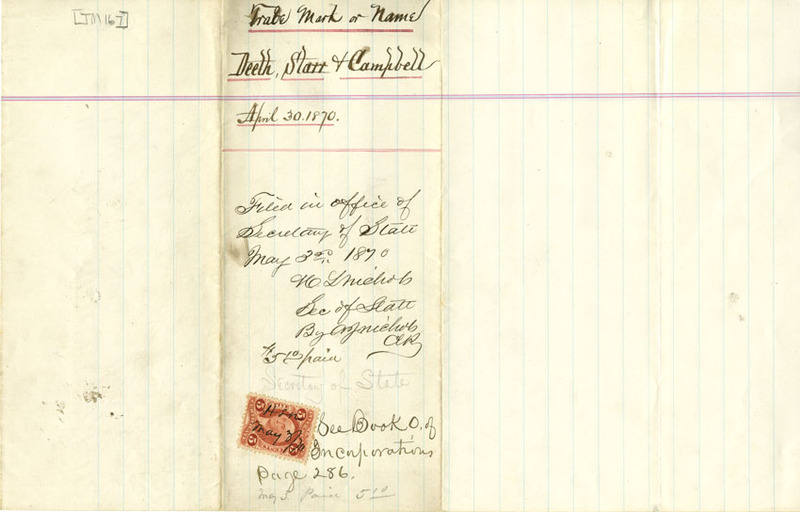 [TM 167]
Trade Mark or Name
Deeth, Starr & Campbell
April 30. 1870.
Filed in office of
Secretary of State
May 3rd 1870
H L Nichols
Sec of State
By Nichols
Clk
$5 10 paid
Secretary of State
May 3/70
See Book O. of
Incorporations
page 286.
May 3. Paid 5 10